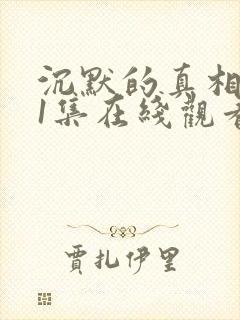 沉默的真相
1集在綫觀看
賈扎伊里